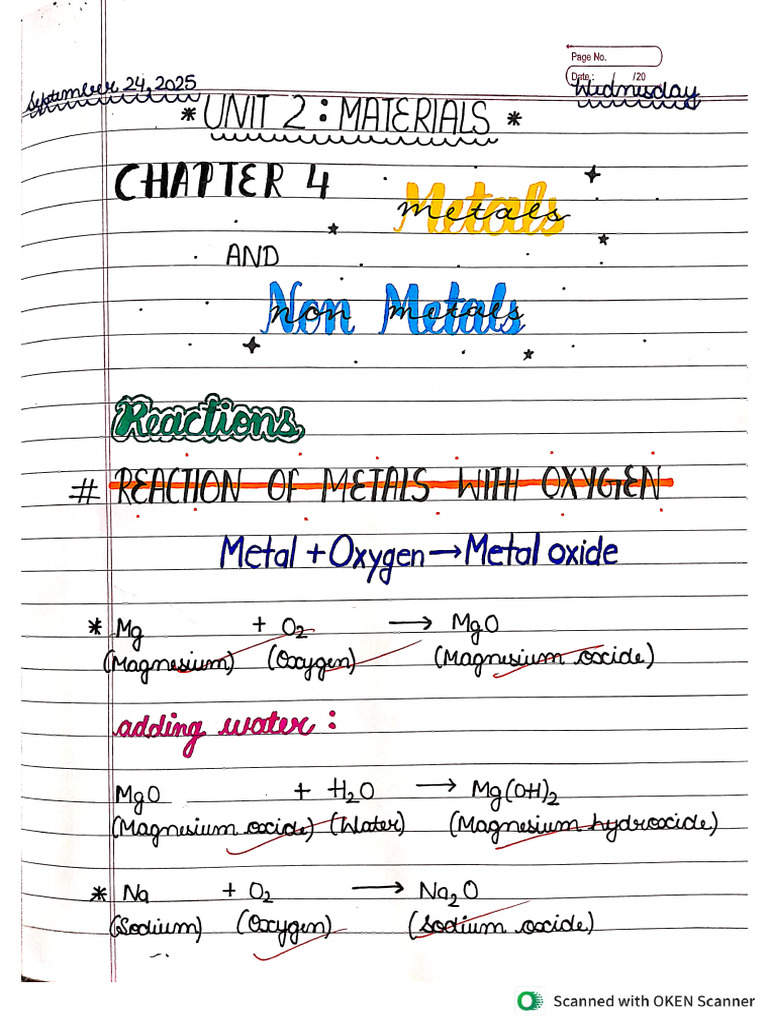 Page No.
Date : /20
September 24, 2025
Wednesday
* UNIT 2 : MATERIALS *
CHAPTER 4 Metals
metals
AND
Non Metals
non metals
Reactions
# REACTION OF METALS WITH OXYGEN
Metal + Oxygen → Metal oxide
* Mg + O₂ → MgO
(Magnesium) (Oxygen) (Magnesium oxide)
adding water :
MgO + H₂O → Mg(OH)₂
(Magnesium oxide) (Water) (Magnesium hydroxide)
* Na + O₂ → Na₂O
(Sodium) (Oxygen) (Sodium oxide)
Scanned with OKEN Scanner